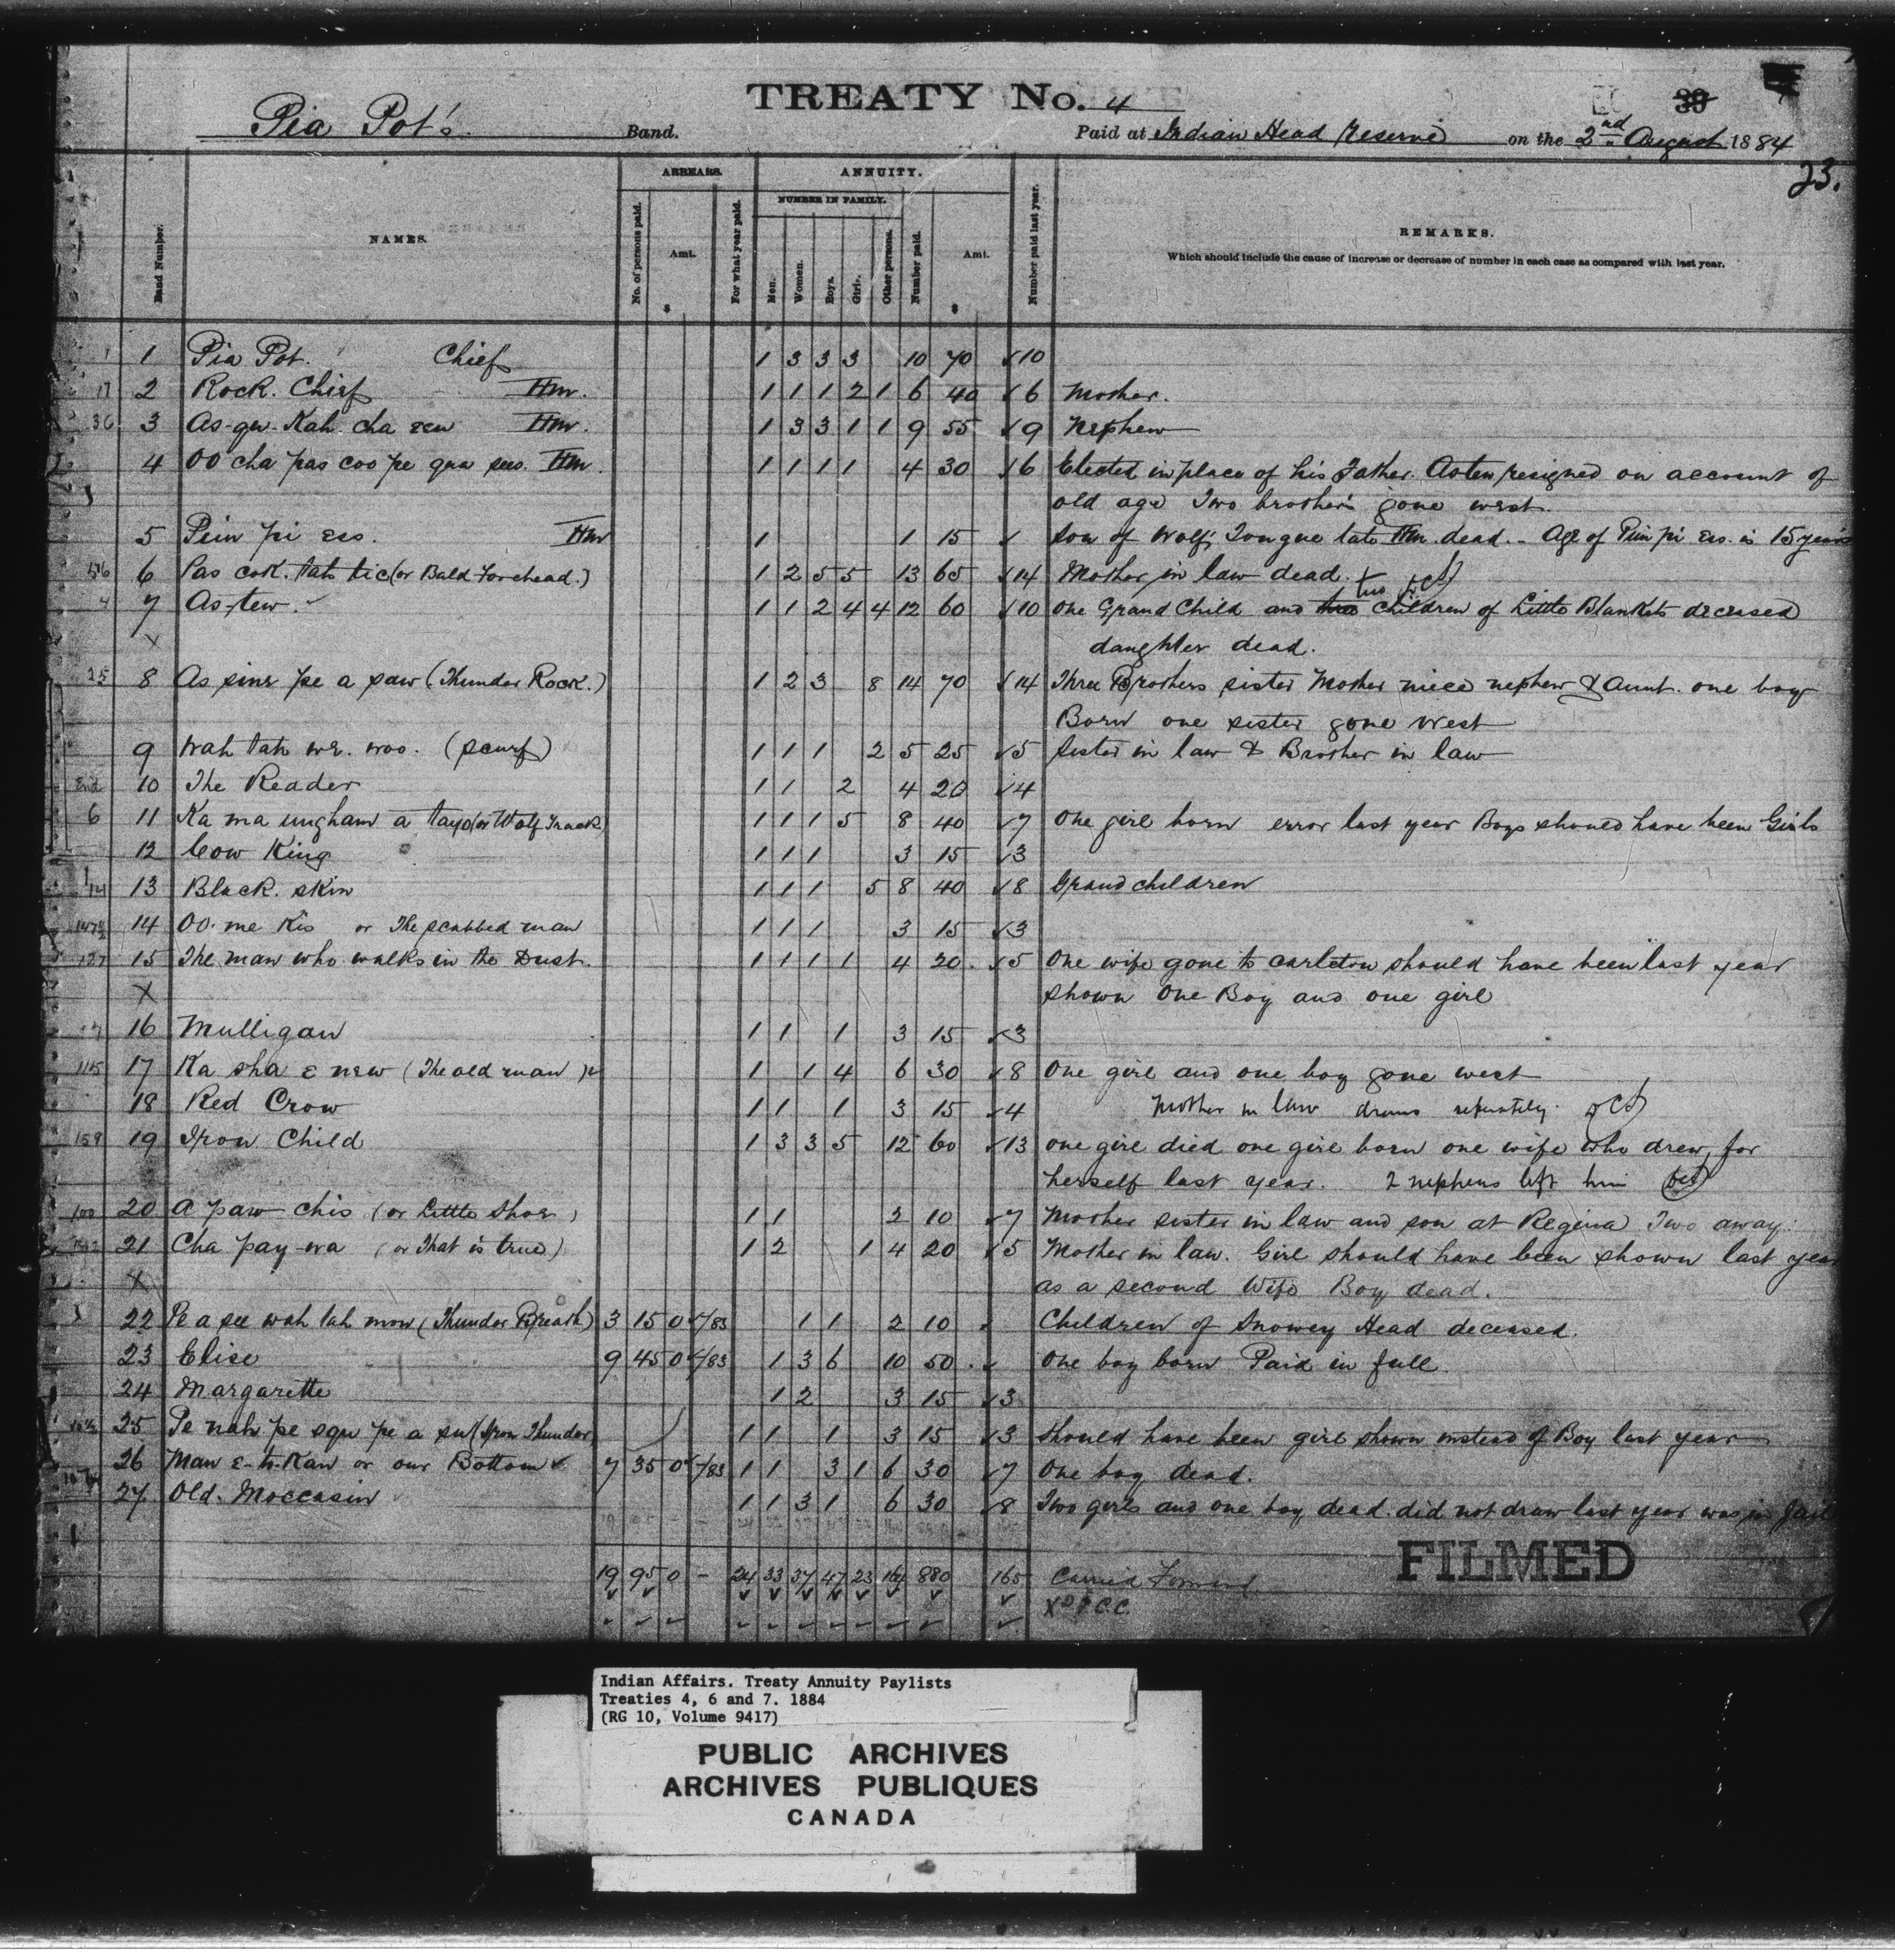 TREATY No. 4
39
Pia Pot's Band. Paid at Indian Head Reserve on the 2nd August 1884
23.
Band Number. NAMES. ARREARS. No. of persons paid. Amt. $ For what year paid. ANNUITY. NUMBER IN FAMILY. Men. Women. Boys. Girls. Other persons. Number paid. Amt. $ Number paid last year. REMARKS.
Which should include the cause of increase or decrease of number in each case as compared with last year.
1 Pia Pot. Chief 1 3 3 3 10 70 ✓10
17 2 Rock. Chief Hm. 1 1 1 2 1 6 40 ✓6 Mother.
36 3 As-qu-Kah cha eew Hm. 1 3 3 1 1 9 55 ✓9 Nephew
4 OO cha pas coo pe qua sees. Hm. 1 1 1 1 4 30 ✓6 Elected in place of his Father. Astew resigned on account of
old age Two brothers gone west.
5 Pein pi ees. Hm 1 1 15 ✓ Son of Wolf's Tongue late Hm. dead. - Age of Pein pi ees. is 15 years
6 Pas cok. tah tic (or Bald Forehead.) 1 2 5 5 13 65 ✓14 Mother in law dead.
4 7 As-tew. ✓ 1 1 2 4 4 12 60 ✓10 One Grand Child and two children of Little Blankets deceased
X daughter dead.
25 8 As sine pe a saw (Thunder Rock.) 1 2 3 8 14 70 ✓14 Three Brothers sister Mother niece nephew & Aunt. one boy
Born one sister gone West
9 Wah tah we. woo. (scurf) 1 1 1 2 5 25 ✓5 Sister in law & Brother in law
10 The Reader 1 1 2 4 20 ✓4
6 11 Ka ma ungham a tayo (or Wolf Track) 1 1 1 5 8 40 ✓7 One girl born error last year Boys should have been Girls
12 Cow King 1 1 1 3 15 ✓3
13 Black. skin 1 1 1 5 8 40 ✓8 Grand children
14 OO. me Kis or The scabbed man 1 1 1 3 15 ✓3
127 15 The man who walks in the Dust. 1 1 1 1 4 20. ✓5 One wife gone to Carleton should have been last year
X shown One Boy and one girl
16 Mulligan 1 1 1 3 15 ✓3
115 17 Ka sha e new (The old man) 1 1 4 6 30 ✓8 One girl and one boy gone west
18 Red Crow 1 1 1 3 15 ✓4 Mother in law draws separately.
159 19 Iron Child 1 3 3 5 12 60 ✓13 one girl died one girl born one wife who drew for
herself last year. 2 nephews left him
100 20 A paw chis (or Little Shoe) 1 1 2 10 ✓7 Mother sister in law and son at Regina Two away.
21 Cha pay-wa (or That is true) 1 2 1 4 20 ✓5 Mother in law. Girl should have been shown last year
X as a second Wife Boy dead.
22 Pe a see wah tah mow (Thunder Breath) 3 15 0 /83 1 1 2 10 Children of Snowey Head deceased.
23 Elise 9 45 0 /83 1 3 6 10 50. ✓ One boy born Paid in full.
24 Margarette 1 2 3 15 ✓3
25 Pe nah pe squ pe a su (Iron Thunder) 1 1 1 3 15 ✓3 Should have been girl shown instead of Boy last year
26 Man e-h-Kan or our Bottom ✓ 7 35 0 /83 1 1 3 1 6 30 ✓7 One boy dead.
27 Old. Moccasin 1 1 3 1 6 30 ✓8 Two girls and one boy dead. did not draw last year was in Jail
FILMED
19 95 0 - 24 33 37 47 23 164 880 165 Carried Forward
Indian Affairs. Treaty Annuity Paylists
Treaties 4, 6 and 7. 1884
(RG 10, Volume 9417)
PUBLIC ARCHIVES
ARCHIVES PUBLIQUES
CANADA